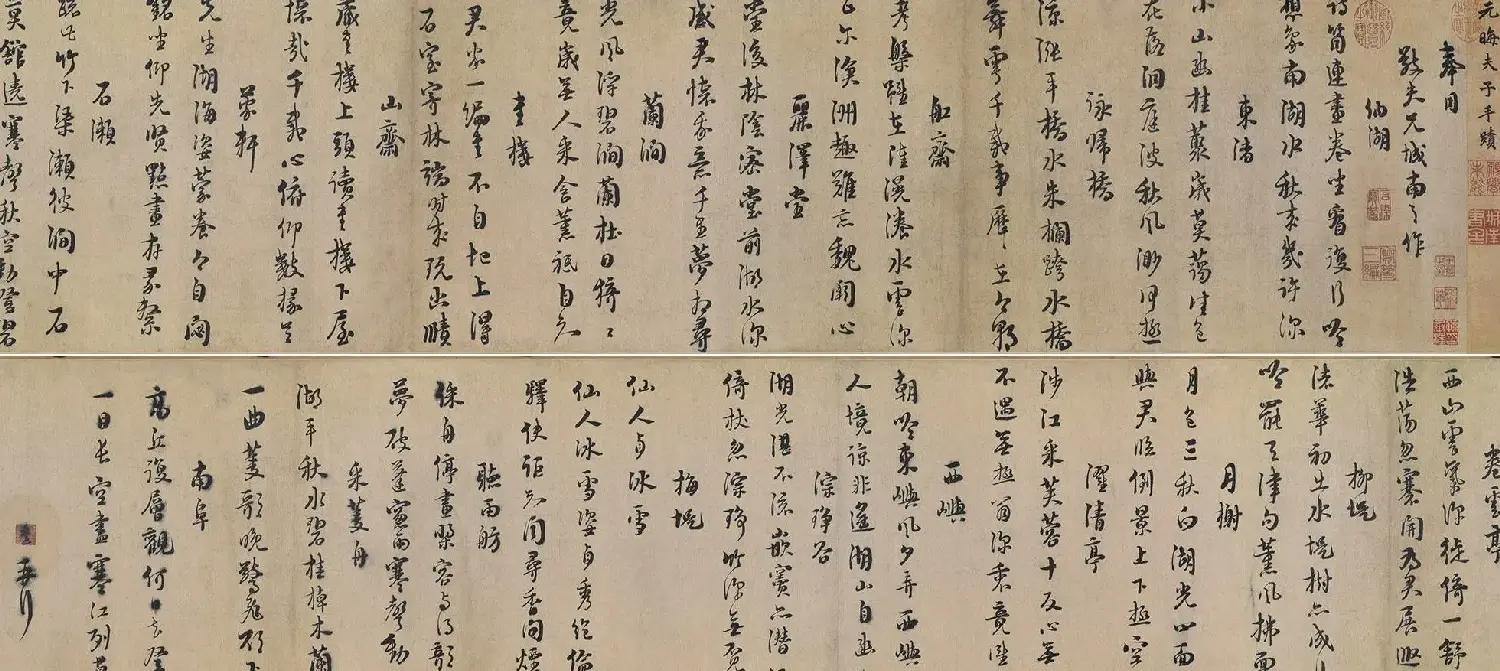 元晦夫子手蹟
奉同
敬夫兄城南之作
納湖
詩筒連畫卷坐看復行吟
想象南湖水秋來幾許深
東渚
小山幽桂叢歲莫藹佳色
花落洞庭波秋風渺何極
詠歸橋
綠漲平橋水朱欄跨水橋
舞雩千載事歷歷在今朝
船齋
考槃雖在陸滉瀁水雲深
正爾滄洲趣難忘魏闕心
麗澤堂
堂後林陰密堂前湖水深
感君懷我意千里夢相尋
蘭澗
光風浮碧澗蘭杜日猗猗
竟歲無人采含薰祗自知
書樓
君家一編書不自圯上得
石室寄林端時來玩幽賾
山齋
藏書樓上頭讀書樓下屋
懷哉千載心俯仰數椽足
蒙軒
先生湖海姿蒙養今自閟
銘坐仰先賢點畫存彖繫
石瀨
疏此竹下渠瀨彼澗中石
莫館遶寒聲秋空動澄碧
卷雲亭
西山雲氣深徙倚一舒
浩蕩忽褰開為君展遐
柳堤
渚華初出水堤樹亦成行
吟罷天津句薰風拂面
月榭
月色三秋白湖光四面
與君臨倒景上下極空
濯清亭
涉江采芙蓉十反心無
不遇無極翁深衷竟誰
西嶼
朝吟東嶼風夕弄西嶼
人境諒非遙湖山自幽
淙琤谷
湖光湛不流嵌竇亦潛
倚杖忽淙琤竹深無覓
梅堤
仙人與冰雪
仙人冰雪姿貞秀絕倫
驛使詎知聞尋香問煙
聽雨舫
綵舟停畫槳容與得欹
夢破蓬窗雨寒聲動
采菱舟
湖平秋水碧桂棹木蘭
一曲菱歌晚驚飛欲下
南阜
高丘復層觀何日去登
一目長空盡寒江列暮